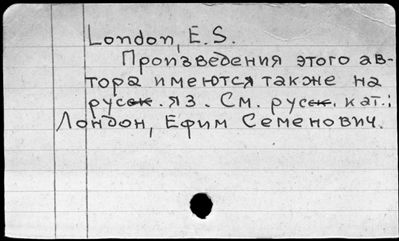 London, E.S.
Произведения этого ав-
тора имеются также на
русск. яз. См. русск. кат.:
Лондон, Ефим Семенович.